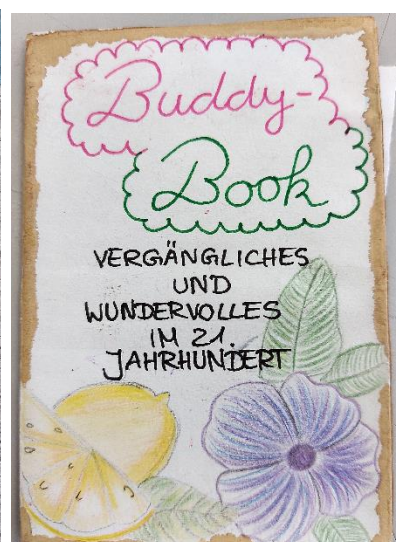 Buddy-
Book
VERGÄNGLICHES
UND
WUNDERVOLLES
IM 21.
JAHRHUNDERT